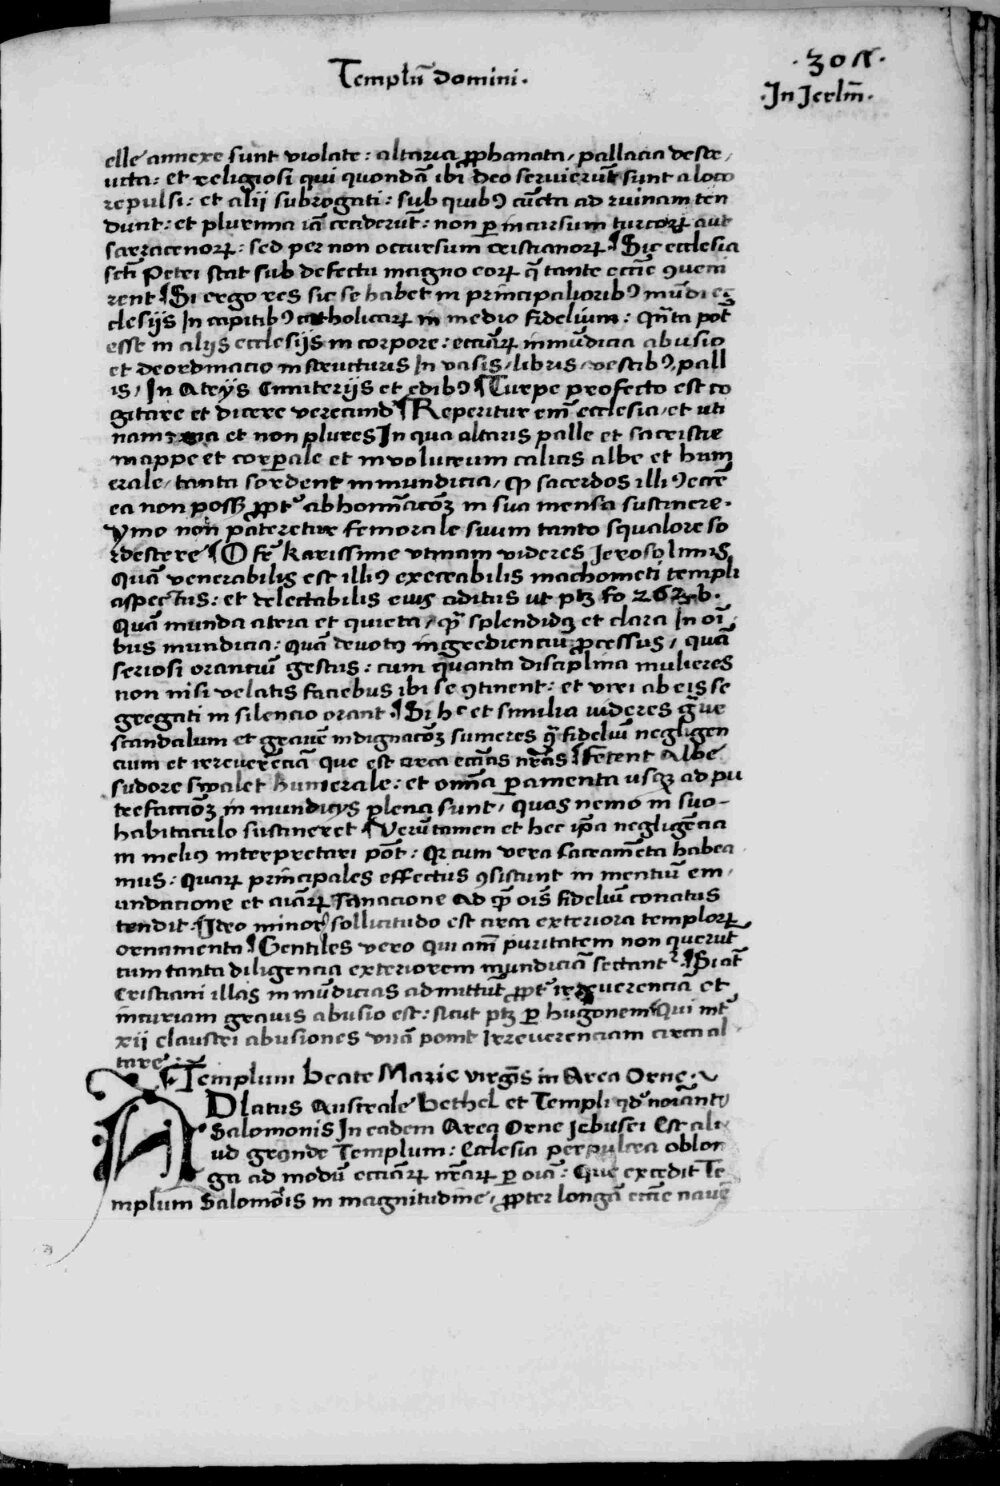 Templũ domini.
.30A.
.In Jerlm̃.
elle annexe sunt violate: altaria ꝓphanata, pallacia destr,
ucta: et religiosi qui quondã ibi deo servierũt sunt a loco
repulsi: et alii subrogati: sub quibꝰ cũcta ad ruinam ten
dunt: et plurima iã ceciderũt: non ꝑ incursum turcorꝝ aut
sarracenorꝝ: sed per non occursum cristianorꝝ ¶ Sic ecclesia
scti Petri stat sub defectu magno eorꝝ q̃ tante ecctĩe ꝯueni
rent ¶ Si ergo res sic se habet in principalioribꝰ mũdi ec
clesijs In capitibꝰ catholicarꝝ in medio fidelium: Qñta pot̃
esse in alijs ecclesijs in corpore: ecctĩarꝝ inmũdicia abusio
et deordinacio in structuris In vasis, libris, vestibꝰ, pall
is, In Atrijs Cimiterijs et edibꝰ ¶ Turpe profecto est co
gitare et dicere verecund ¶ Reperitur em̃ ecclesia, et uti
nam una et non plures In qua altaris palle et sacristie
mappe et corꝑale et involucrum calicis albe et hum
erale, tanta sordent inmundicia, ꝙ sacerdos illiꝰ ecctẽ
ea non poss̃ ꝓpt᷑ abhominacõꝫ in sua mensa sustinere.
Ymo non pateretur femorale suum tanto squalore so
rdescere ¶ O fr̃ karissime utinam videres Jerosolimis
Quã venerabilis est illiꝰ execrabilis machometi templi
aspectus: et delectabilis eius aditus ut ptꝫ fo 262.b.
Quã munda atria et quieta, q̃ splendidꝫ et clara In oĩ,
bus mundicia: Quã devotꝰ ingredienciũ ꝓcessus, quã
seriosi orantiũ gestus: cum quanta disciplina mulieres
non nisi velatis faciebus ibi se ꝯtinent: et viri ab eis se
gregati in silencio orant ¶ Si hc et similia videres g̃ue
scandalum et gravẽ indignacõꝫ sumeres q̃ fideliũ negligen
ciam et irreverẽciã que est circa ecctĩas nr̃as ¶ Fetent albe
sudore et humerale: et om̃ia ꝑamenta usqꝫ ad pu
trefactiõꝫ in mundicijs plena sunt, quas nemo in suo-
habitaculo sustineret ¶ Verũtamen et hec ip̃a negligẽcia
in meliꝰ interpretari põt: Qꝛ cum vera sacramẽta habea
mus: Quarꝝ principales effectus ꝯsistunt in mentiũ em,
undacione et aĩarꝝ sanacione ad q̃ oĩs fideliũ conatus
tendit ¶ Ideo minor sollicitudo est circa exteriora templorꝝ
ornamenta ¶ Gentiles vero qui aĩarĩ puritatem non querũt
cum tanta diligencia exteriorem mundiciã sectant᷑ ¶ Si aũt
Cristiani illas in mũdicias admittũt ꝓpt᷑ irreverencia et
incuriam gravis abusio est: sicut ptꝫ ꝑ hugonem Qui int᷑
xii claustri abusiones unã ponit Irreverenciam circa al
tare.
¶ Templum beate Marie virgĩs in Area Orne.
AD latus Australe bethel et Templi qd̃ noĩant᷑
Salomonis In eadem Area Orne Jebusei Est ali
ud grande Templum: Ecclesia perpulcra oblon
ga ad modũ ecctĩarꝝ nr̃arꝝ ꝑ oĩa: Que excedit Te
mplum Salomõis in magnitudine, ꝓpter longã ecctĩe navẽ